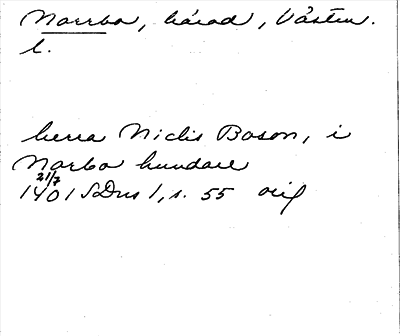 Norrbo, härad, Västm.
l.
herra Niclis Boson, i
Norbo hundare
21/7
1401 SDns 1, s. 55 orig